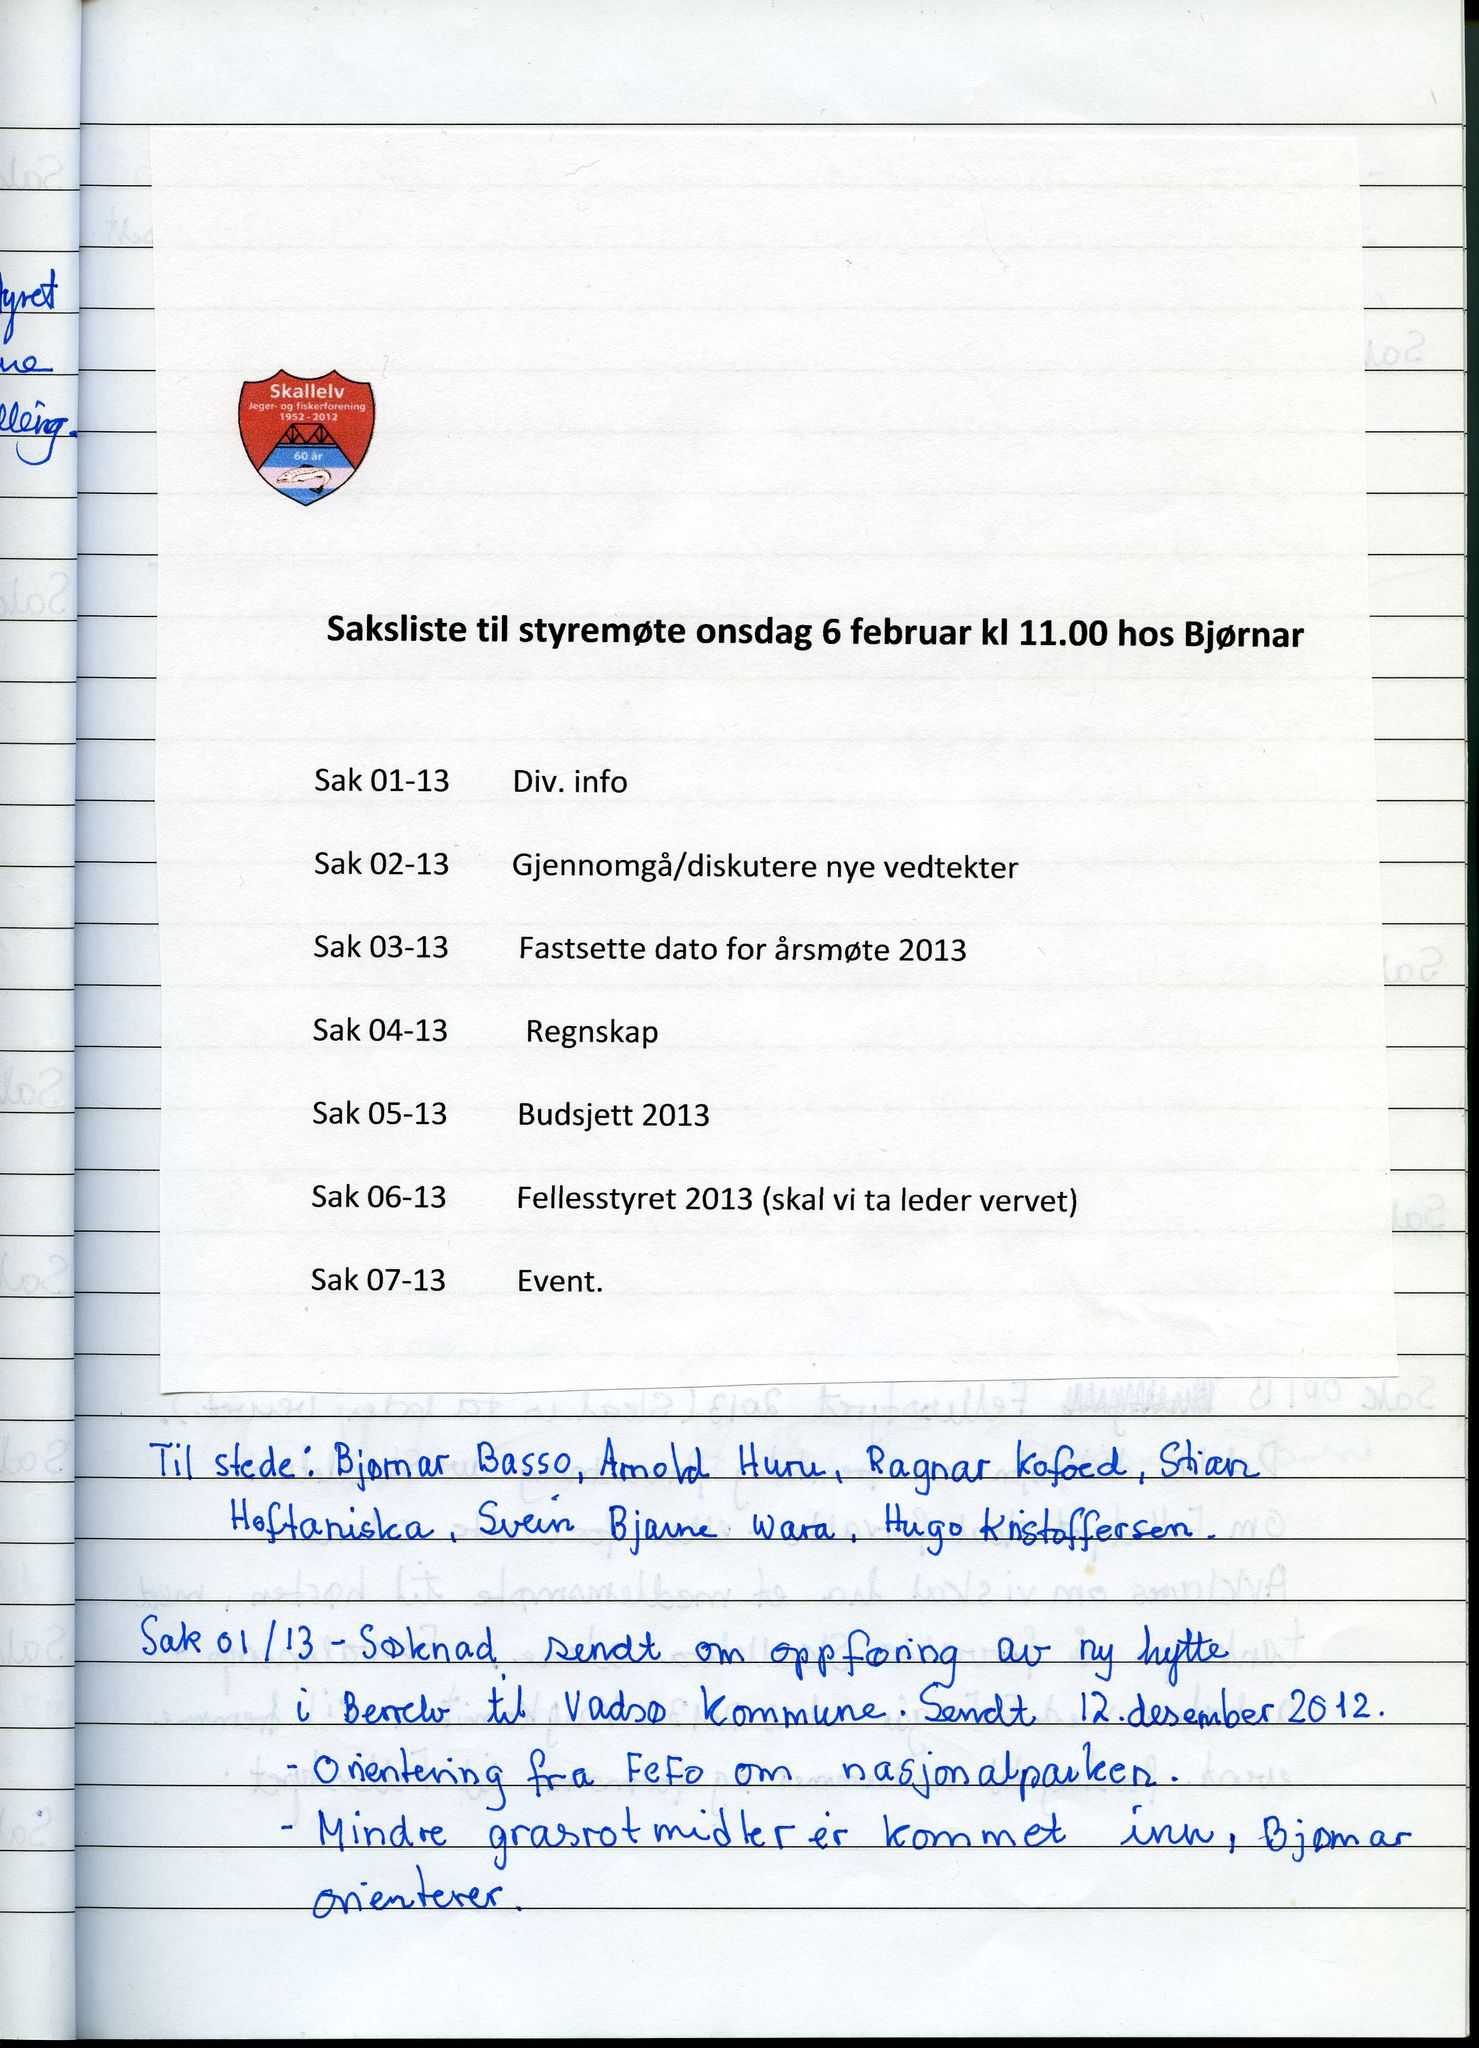 tyret
ne
lling.
Skallelv
Jeger- og fiskerforening
1952 - 2012
60 år
Saksliste til styremøte onsdag 6 februar kl 11.00 hos Bjørnar
Sak 01-13 Div. info
Sak 02-13 Gjennomgå/diskutere nye vedtekter
Sak 03-13 Fastsette dato for årsmøte 2013
Sak 04-13 Regnskap
Sak 05-13 Budsjett 2013
Sak 06-13 Fellesstyret 2013 (skal vi ta leder vervet)
Sak 07-13 Event.
Til stede: Bjørnar Basso, Arnold Huru, Ragnar Kofoed, Stian
Hoftaniska, Svein Bjarne Wara, Hugo Kristoffersen.
Sak 01/13 - Søknad sendt om oppføring av ny hytte
i Berrelv til Vadsø kommune. Sendt 12. desember 2012.
- Orientering fra FeFo om nasjonalparken.
- Mindre grasrotmidler er kommet inn, Bjørnar
orienterer.